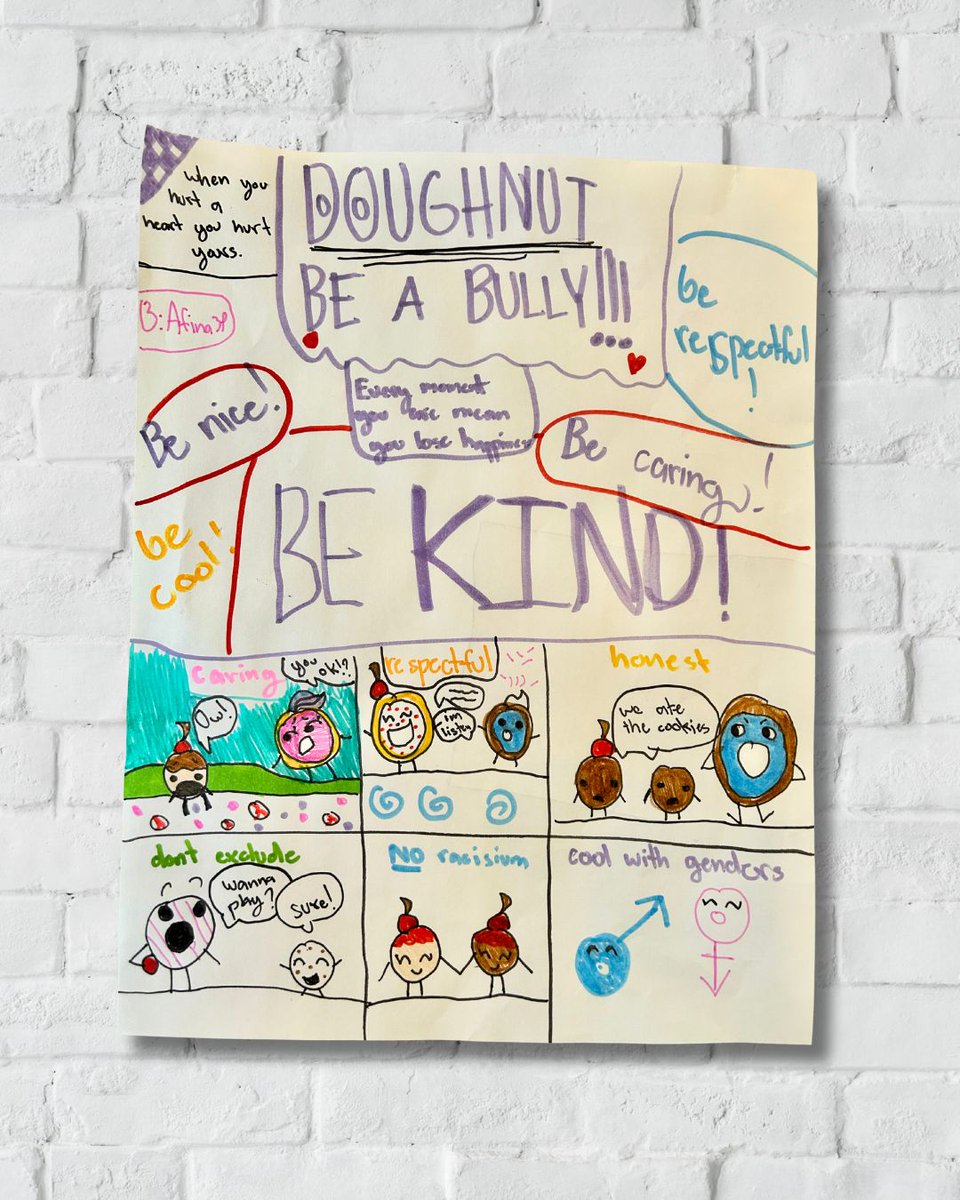 when you
hurt a
heart you hurt
yours.
DOUGHNUT
BE A BULLY!!!
...
be
respectful
!
B: Afina
Be nice!
Every moment
you are mean
you lose happiness
Be caring!
be
cool!
BE KIND!
caring
you
ok!?
Ow!
respectful
im
listen
honest
we ate
the cookies
dont exclude
wanna
play?
sure!
NO rasisium
cool with genders